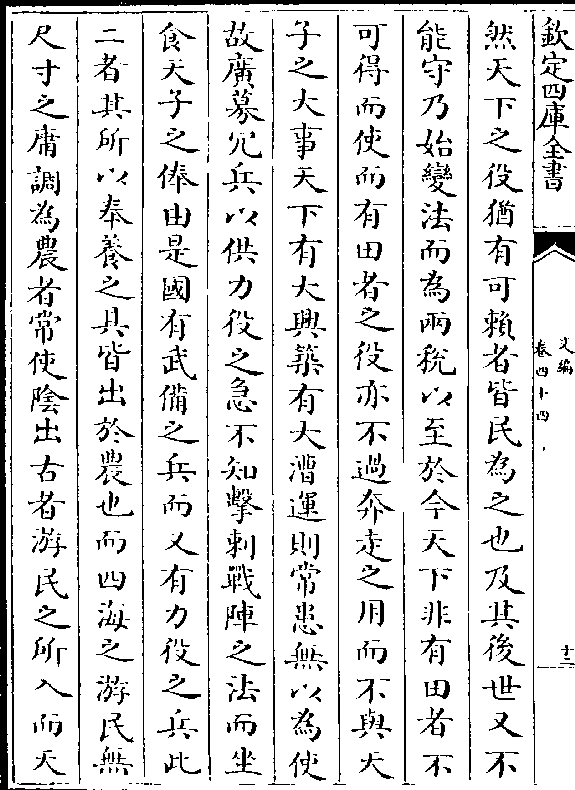 欽定四庫全書
文編
卷四十四
十三
然天下之役猶有可賴者皆民為之也及其後世又不
能守乃始變法而為兩稅以至於今天下非有田者不
可得而使而有田者之役亦不過奔走之用而不與天
子之大事天下有大興築有大漕運則常患無以為使
故廣募冗兵以供力役之急不知擊刺戰陣之法而坐
食天子之俸由是國有武備之兵而又有力役之兵此
二者其所以奉養之具皆出於農也而四海之游民無
尺寸之庸調為農者常使陰出古者游民之所入而天